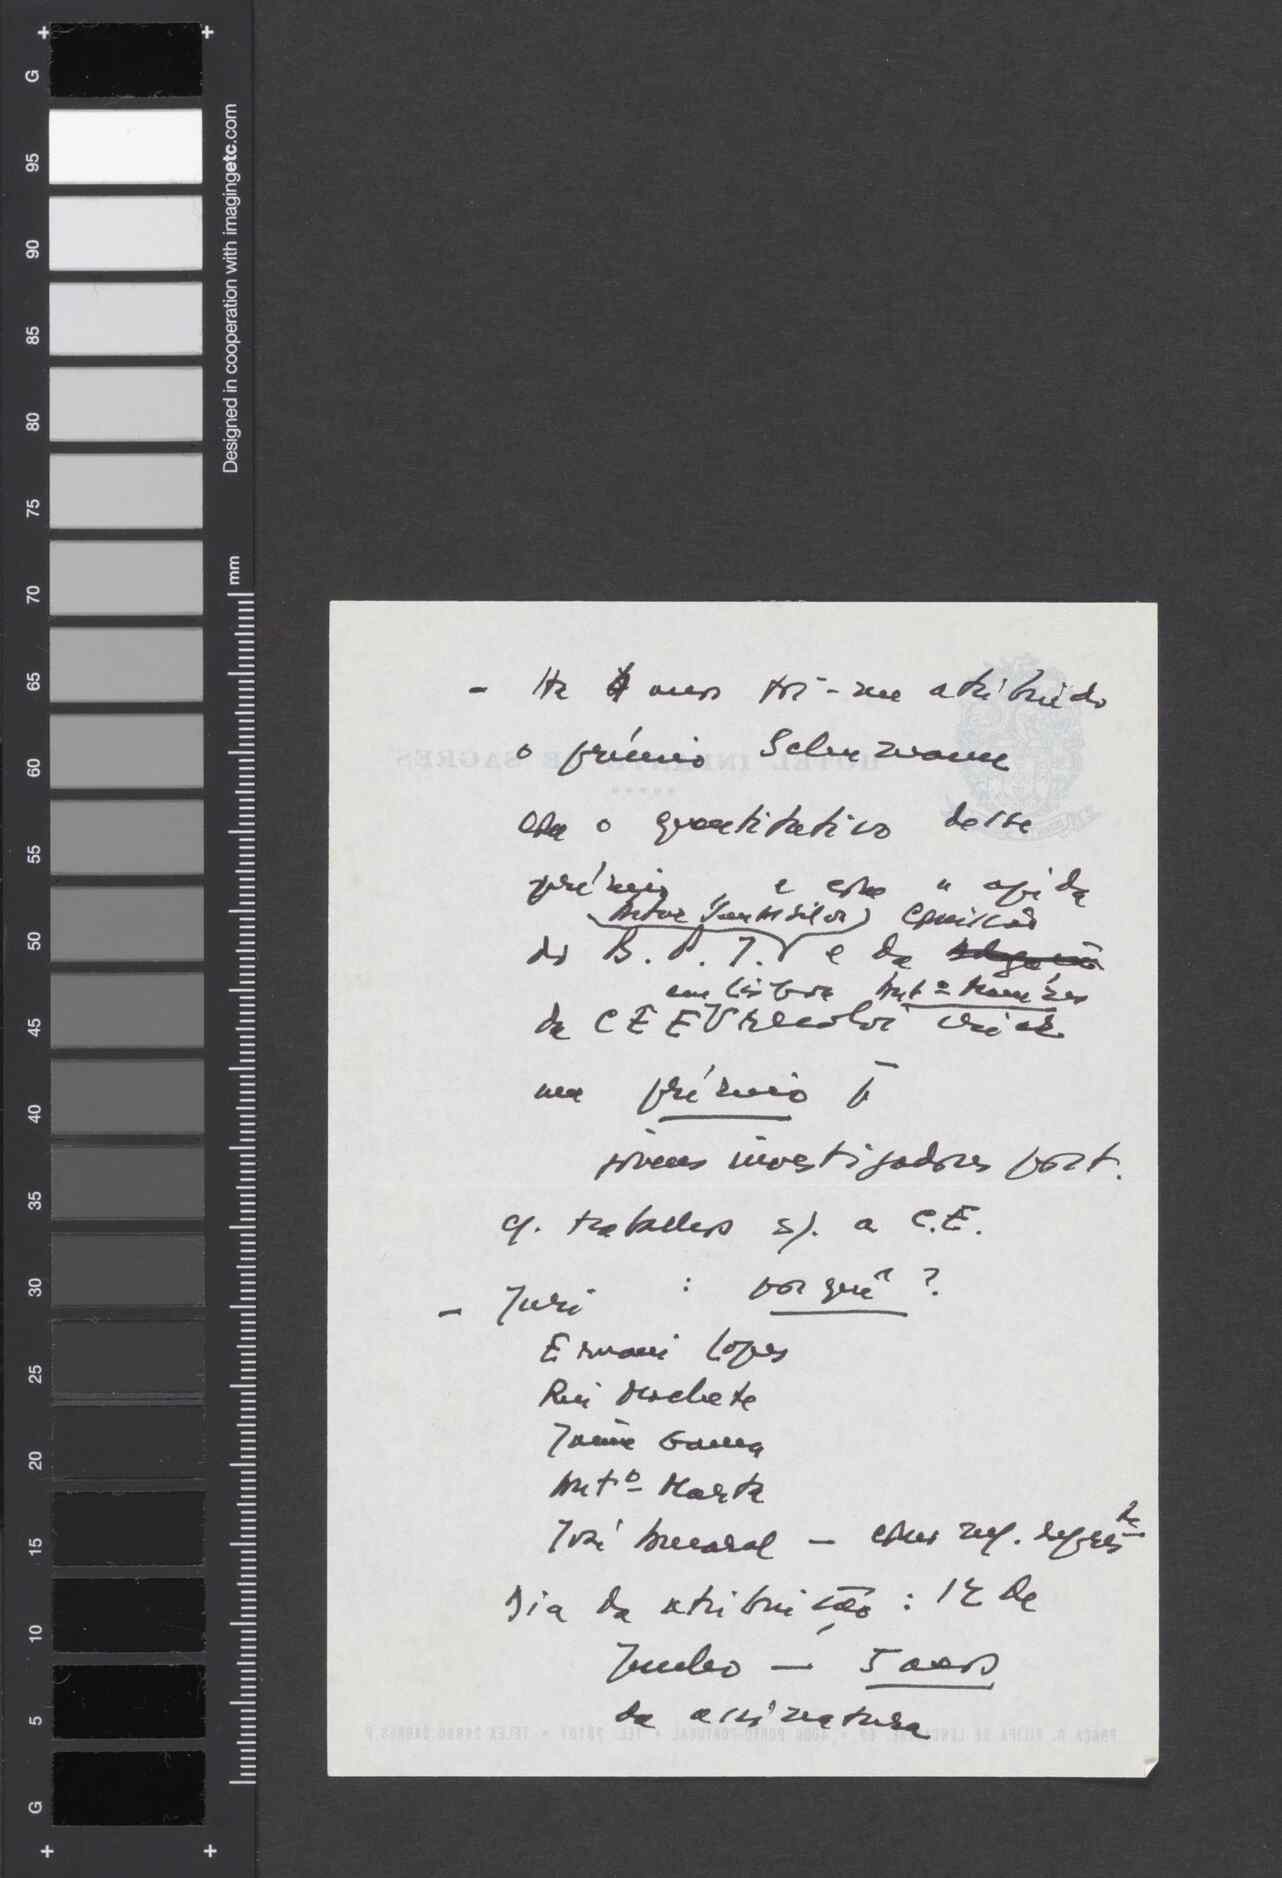 G
95
90
85
80
75
70
65
60
55
50
45
40
35
30
25
20
15
10
5
G
Designed in cooperation with imagingetc.com
mm
- Há anos foi-me atribuído
o prémio Schumann
o quantitativo desse
prémio e com o apoio
(Artur Santos Silva) Comissão
do B.P.I. e da
em Lisboa Antº
da CEE resolvi criar
um prémio p
jovens investigadores port.
q. trabalhem s/. a C.E.
- Juri : porquê ?
Ernani Lopes
Rui Machete
Jaime Gama
Antº Marta
José Amaral - como meu repres te
Dia da atribuição : 12 de
Junho - 5 anos
da assinatura
HOTEL INFANTE DE SAGRES
PRAÇA D. FILIPA DE LENCASTRE, 62 • 4000 PORTO-PORTUGAL • TEL. 28101 • TELEX 26880 SAGRES P